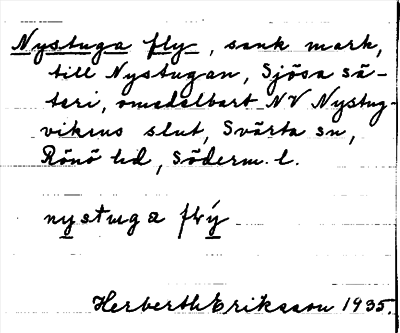 Nystuga fly, sank mark,
till Nystugan, Sjösa sä-
teri, omedelbart NV Nystug-
vikens slut, Svärta sn,
Rönö hd, Söderm. l.
nystuga flý
Herberth Eriksson 1935.